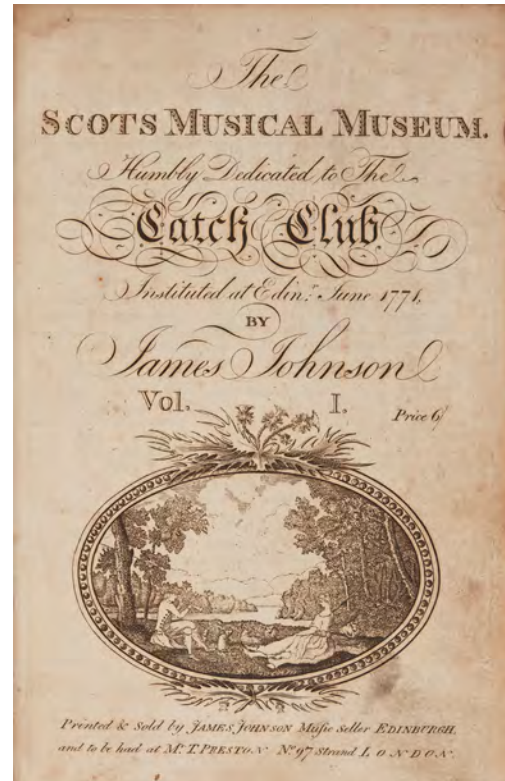 The
SCOTS MUSICAL MUSEUM.
Humbly Dedicated to The
Catch Club
Instituted at Edin.r June 1771,
BY
James Johnson
Vol. I. Price 6/
Printed & Sold by JAMES JOHNSON Music Seller EDINBURGH.
and to be had at Mr. T. PRESTON No. 97 Strand LONDON.